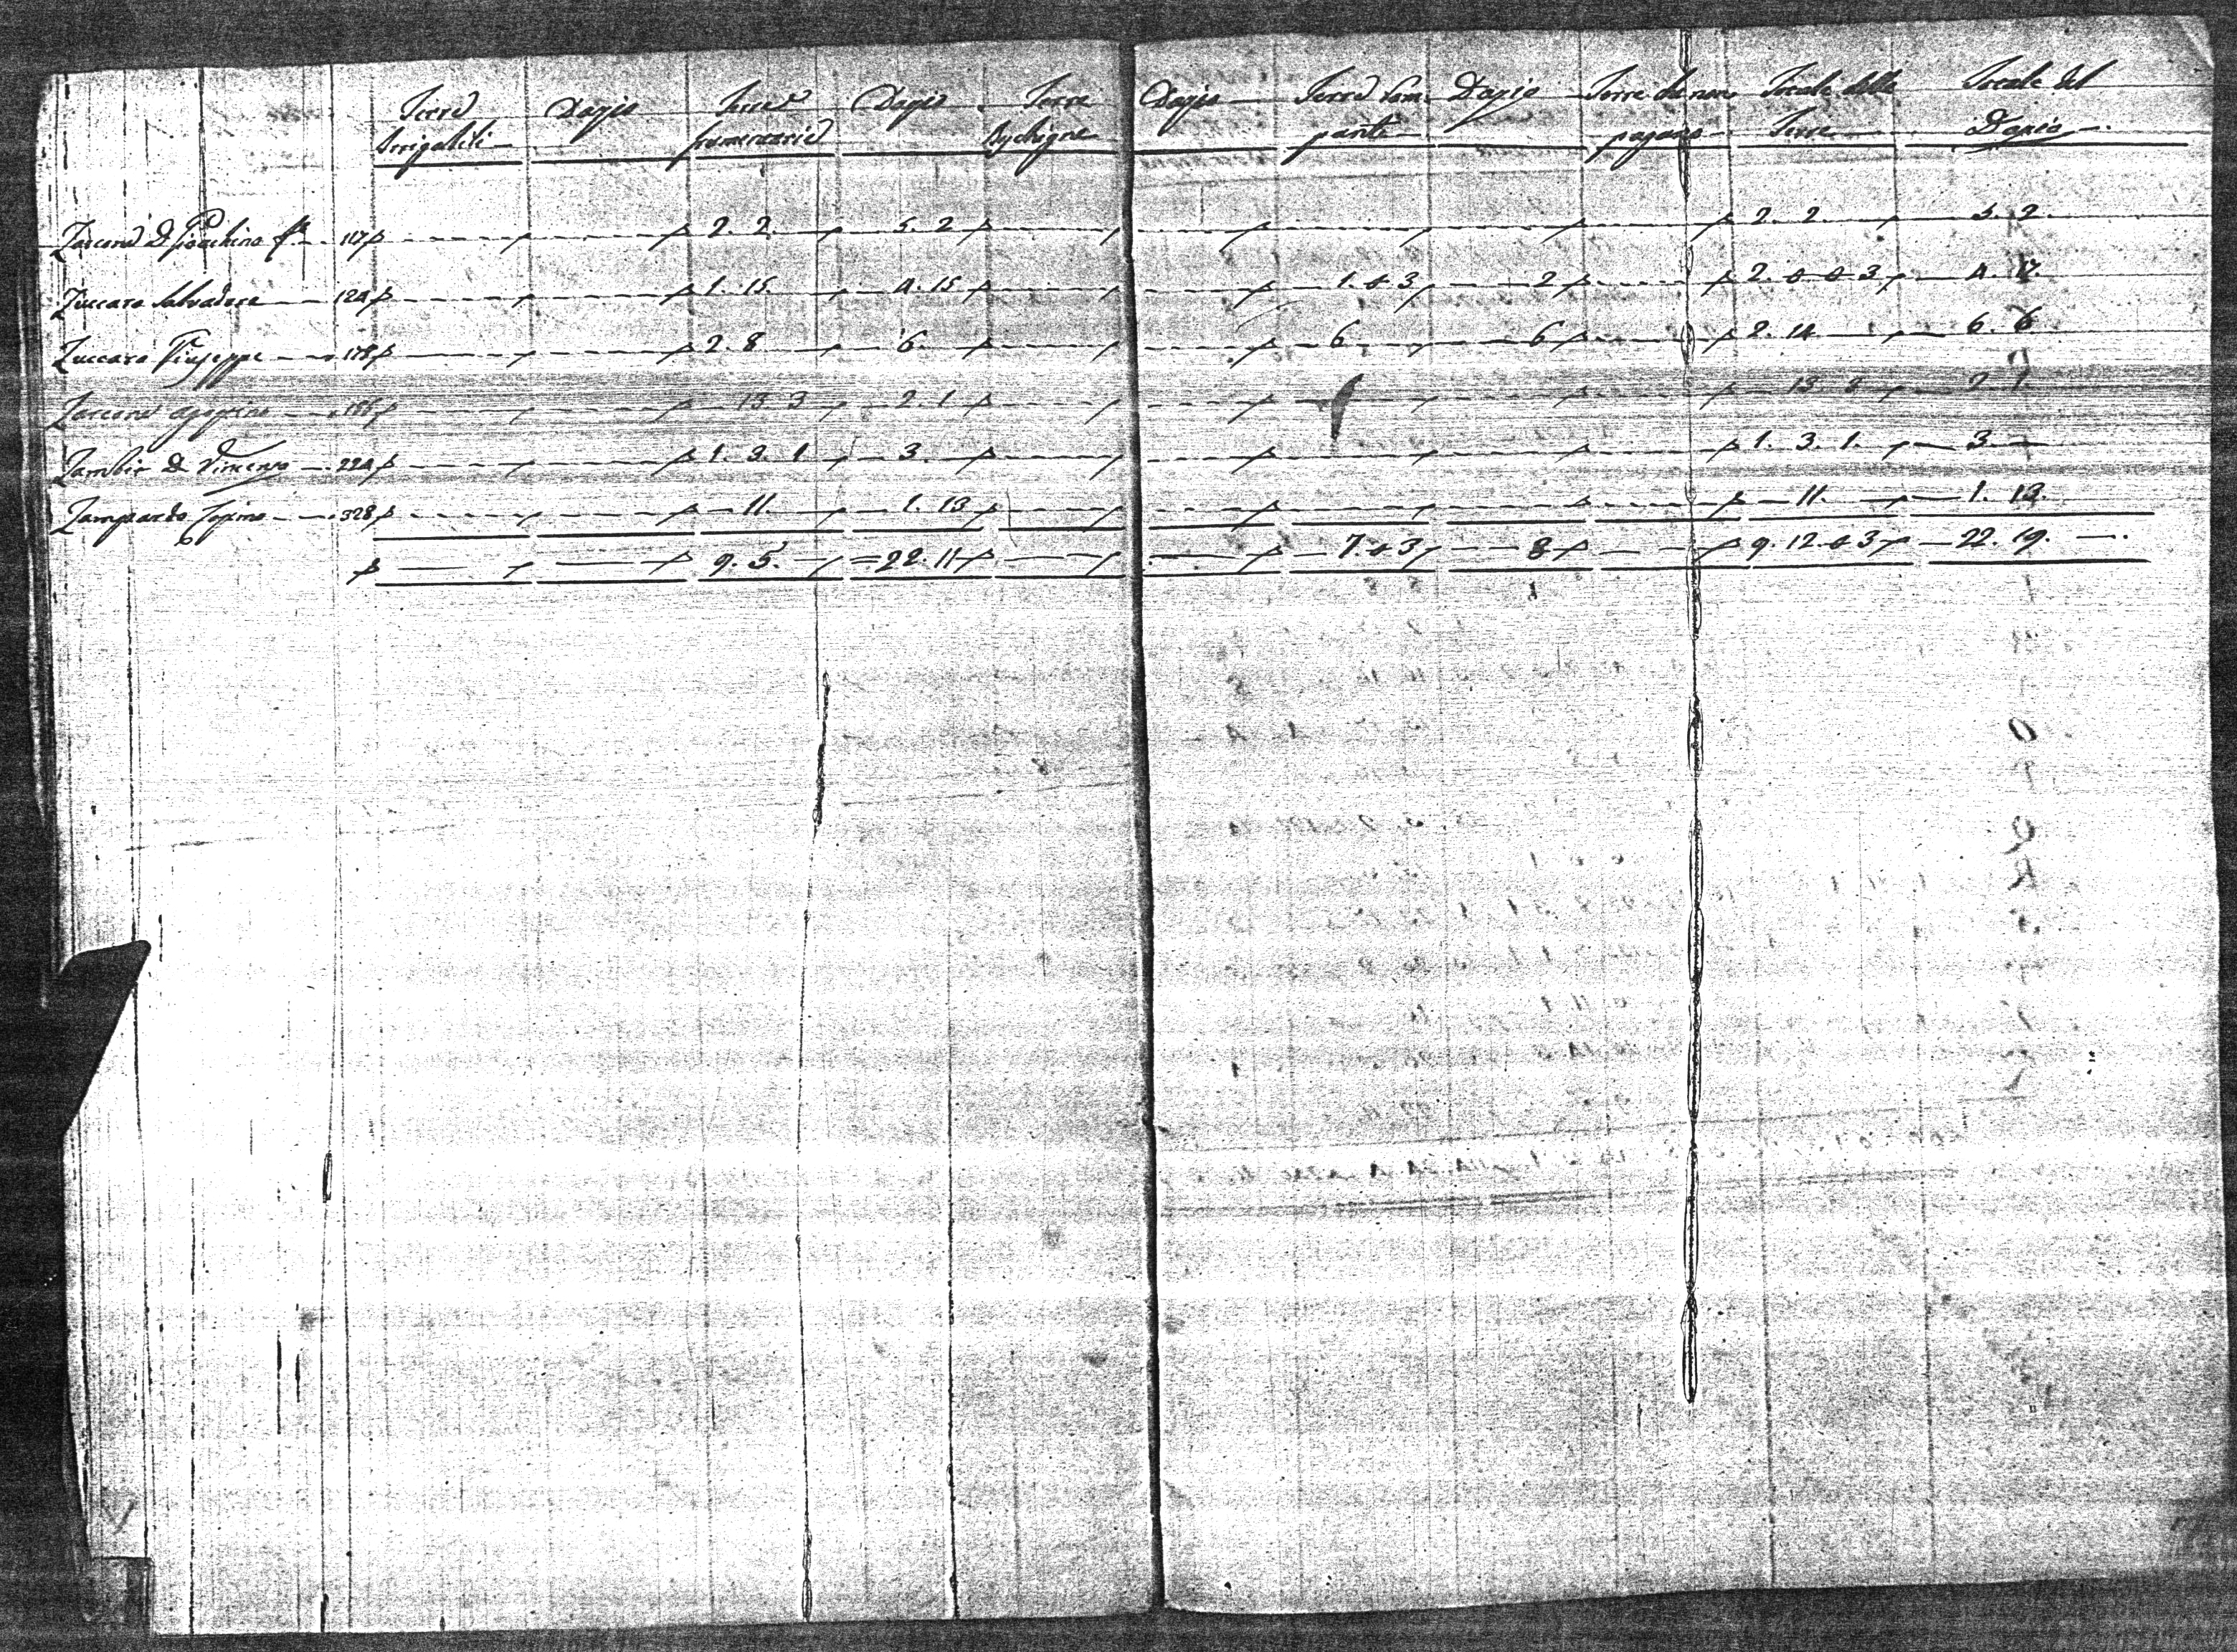 Terre Dazio Terre Dazio Terre Dazio Terre Ram- Dazio Terre che non Totale delle Totale del
Irrigabili frumentarie panti pagano Terre Dazio
Zarcone D. Gioachino 117 2. 2 5. 2 2. 2 5. 2
Zuccaro Salvadore 124 1. 15 4. 15 1. 0 3 2 2. 0 0 3 4. 17
Zuccaro Giuseppe 178 2. 8 6 6 6 2. 14 6. 6
Zarcone Agostino 186 13 3 2. 1 13. 3 2 1
Zambito D. Vincenzo 224 1. 3. 1 3 1. 3. 1 3
Zampardo 328 11 1. 13 11 1. 13
9. 5 22. 11 7 0 3 8 9. 12. 0 3 22. 19